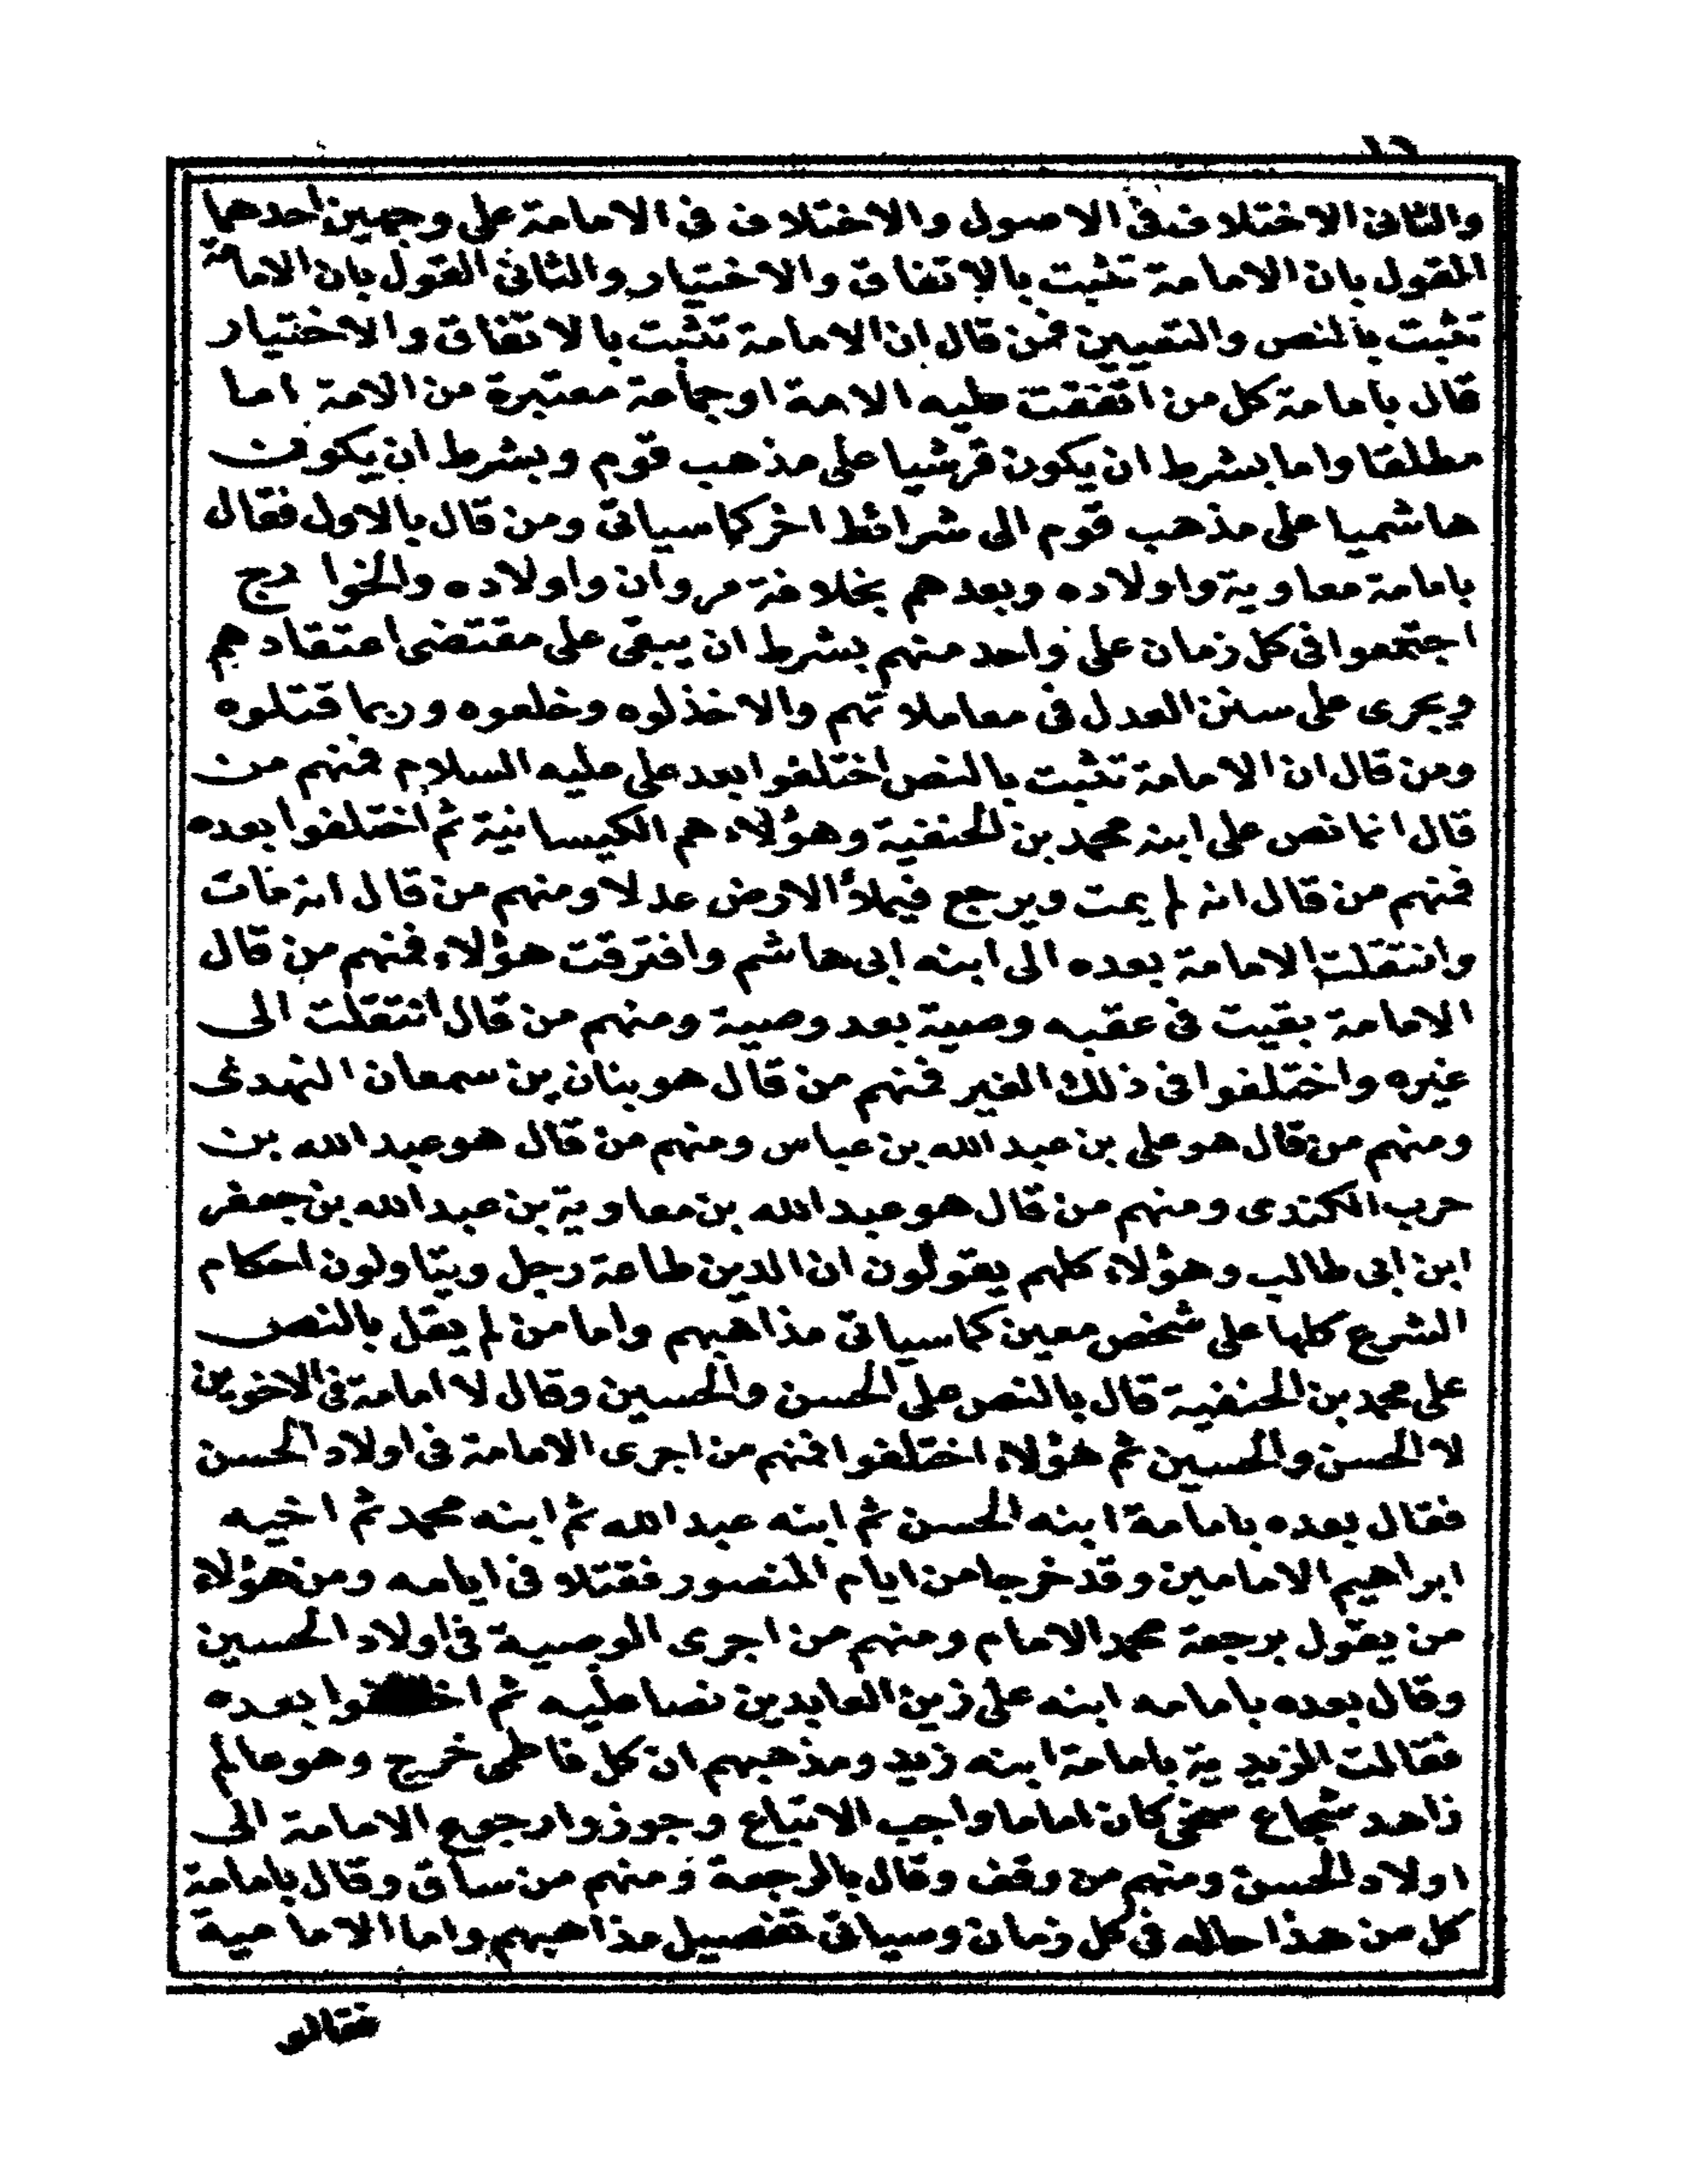 ١٦
والثانى الاختلاف فى الاصول والاختلاف فى الامامة على وجهين احدهما
القول بان الامامة تثبت بالاتفاق والاختيار والثانى القول بان الامامة
تثبت بالنص والتعيين فمن قال ان الامامة تثبت بالاتفاق والاختيار
قال بامامة كل من اتفقت عليه الامة او جماعة معتبرة من الامة اما
مطلقا واما بشرط ان يكون قرشيا على مذهب قوم وبشرط ان يكون
هاشميا على مذهب قوم الى شرائط اخر كما سياتى ومن قال بالاول فقال
بامامة معاوية واولاده وبعدهم بخلافة مروان واولاده والخوارج
اجتمعوا فى كل زمان على واحد منهم بشرط ان يبقى على مقتضى اعتقادهم
ويجرى على سنن العدل فى معاملاتهم والا خذلوه وخلعوه وربما قتلوه
ومن قال ان الامامة تثبت بالنص اختلفوا بعد على عليه السلام فمنهم من
قال انما نص على ابنه محمد بن الحنفية وهؤلاء هم الكيسانية ثم اختلفوا بعده
فمنهم من قال انه لم يمت ويرجع فيملأ الارض عدلا ومنهم من قال انه مات
وانتقلت الامامة بعده الى ابنه ابى هاشم وافترقت هؤلاء فمنهم من قال
الامامة بقيت فى عقبه وصية بعد وصية ومنهم من قال انتقلت الى
غيره واختلفوا فى ذلك الغير فمنهم من قال هو بنان بن سمعان النهدى
ومنهم من قال هو على بن عبد الله بن عباس ومنهم من قال هو عبد الله بن
حرب الكندى ومنهم من قال هو عبد الله بن معاوية بن عبد الله بن جعفر
ابن ابى طالب وهؤلاء كلهم يقولون ان الدين طاعة رجل ويتاولون احكام
الشرع كلها على شخص معين كما سياتى مذاهبهم واما من لم يقل بالنص
على محمد بن الحنفية قال بالنص على الحسن والحسين وقال لا امامة فى الاخوين
لا الحسن والحسين ثم هؤلاء اختلفوا فمنهم من اجرى الامامة فى اولاد الحسن
فقال بعده بامامة ابنه الحسن ثم ابنه عبد الله ثم ابنه محمد ثم اخيه
ابراهيم الامامين وقد خرجا من ايام المنصور فقتلا فى ايامه ومن هؤلاء
من يقول برجعة محمد الامام ومنهم من اجرى الوصية فى اولاد الحسين
وقال بعده بامامه ابنه على زين العابدين نصا عليه ثم اختلفوا بعده
فقالت الزيدية بامامة ابنه زيد ومذهبهم ان كل فاطمى خرج وهو عالم
زاهد شجاع سخى كان اماما واجب الاتباع وجوزوا رجوع الامامة الى
اولاد الحسن ومنهم من وقف وقال بالرجعة ومنهم من ساق وقال بامامة
كل من هذا حاله فى كل زمان وسياتى تفصيل مذاهبهم واما الامامية
فقالو